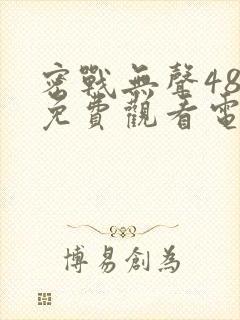 密戰無聲48
免費觀看電
博易創為